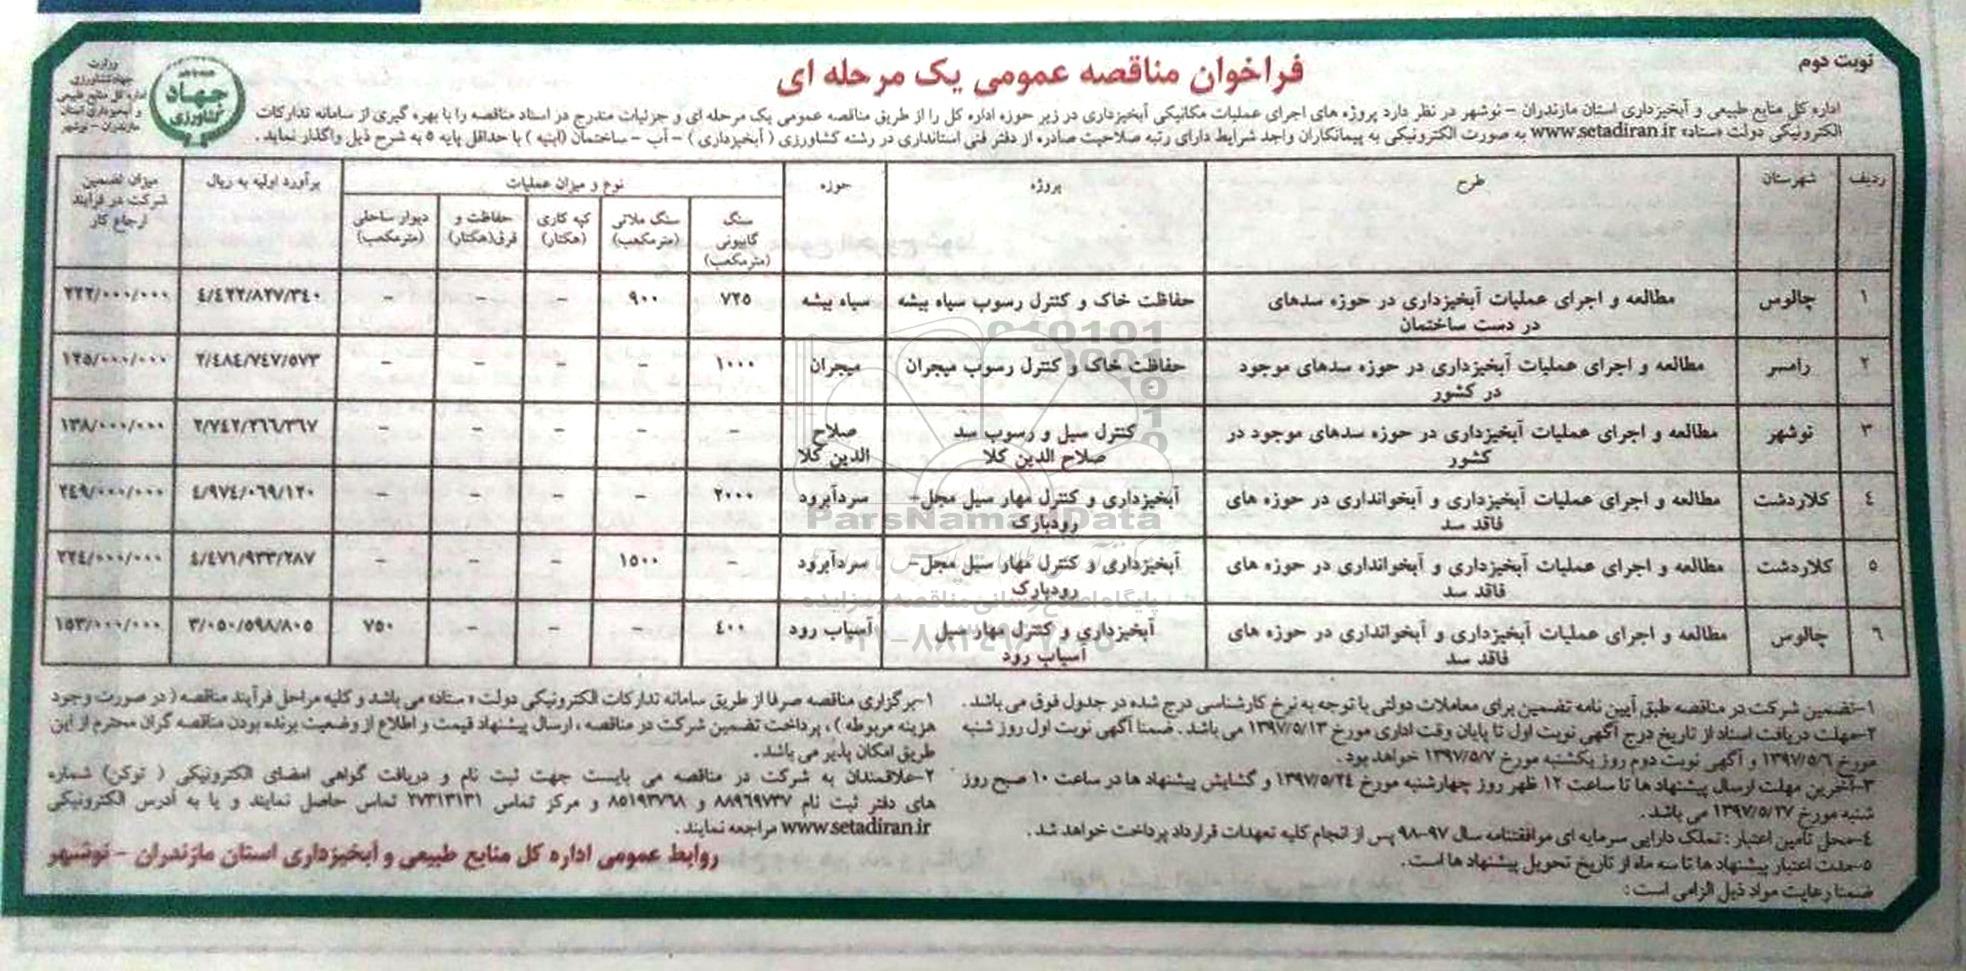 نوبت دوم
فراخوان مناقصه عمومی یک مرحله ای
وزارت
جهادکشاورزی
اداره کل منابع طبیعی
و آبخیزداری استان
مازندران - نوشهر
جهاد
کشاورزی
اداره کل منابع طبیعی و آبخیزداری استان مازندران - نوشهر در نظر دارد پروژه های اجرای عملیات مکانیکی آبخیزداری در زیر حوزه اداره کل را از طریق مناقصه عمومی یک مرحله ای و جزئیات مندرج در اسناد مناقصه را با بهره گیری از سامانه تدارکات
الکترونیکی دولت «ستاد» www.setadiran.ir به صورت الکترونیکی به پیمانکاران واجد شرایط دارای رتبه صلاحیت صادره از دفتر فنی استانداری در رشته کشاورزی ( آبخیزداری ) - آب - ساختمان (ابنیه ) با حداقل پایه ۵ به شرح ذیل واگذار نماید .
ردیف شهرستان طرح پروژه حوزه نوع و میزان عملیات برآورد اولیه به ریال میزان تضمین شرکت در فرآیند ارجاع کار
سنگ گابیونی (مترمکعب) سنگ ملاتی (مترمکعب) کپه کاری (هکتار) حفاظت و قرق(هکتار) دیوار ساحلی (مترمکعب)
۱ چالوس مطالعه و اجرای عملیات آبخیزداری در حوزه سدهای حفاظت خاک و کنترل رسوب سیاه بیشه سیاه بیشه ۷۲۵ ۹۰۰ - - - ۴/۴۲۲/۸۲۷/۳۴۰ ۲۲۲/۰۰۰/۰۰۰
در دست ساختمان
۲ رامسر مطالعه و اجرای عملیات آبخیزداری در حوزه سدهای موجود حفاظت خاک و کنترل رسوب میجران میجران ۱۰۰۰ - - - - ۲/۴۸۴/۷۴۷/۵۷۳ ۱۲۵/۰۰۰/۰۰۰
در کشور
۳ نوشهر مطالعه و اجرای عملیات آبخیزداری در حوزه سدهای موجود در کنترل سیل و رسوب سد صلاح - - - - - ۲/۷۴۲/۲۶۶/۳۶۷ ۱۳۸/۰۰۰/۰۰۰
کشور صلاح الدین کلا الدین کلا
۴ کلاردشت مطالعه و اجرای عملیات آبخیزداری و آبخوانداری در حوزه های آبخیزداری و کنترل مهار سیل مجل- سردآبرود ۲۰۰۰ - - - - ۴/۹۷۴/۰۶۹/۱۲۰ ۲۴۹/۰۰۰/۰۰۰
فاقد سد رودبارک
۵ کلاردشت مطالعه و اجرای عملیات آبخیزداری و آبخوانداری در حوزه های آبخیزداری و کنترل مهار سیل مجل- سردآبرود - ۱۵۰۰ - - - ۴/۴۷۱/۹۳۳/۲۸۷ ۲۲۴/۰۰۰/۰۰۰
فاقد سد رودبارک
۶ چالوس مطالعه و اجرای عملیات آبخیزداری و آبخوانداری در حوزه های آبخیزداری و کنترل مهار سیل آسیاب رود ۴۰۰ - - - ۷۵۰ ۳/۰۵۰/۵۹۸/۸۰۵ ۱۵۳/۰۰۰/۰۰۰
فاقد سد آسیاب رود
ParsNamadData
پایگاه اطلاع رسانی مناقصه و مزایده
۱-تضمین شرکت در مناقصه طبق آیین نامه تضمین برای معاملات دولتی با توجه به نرخ کارشناسی درج شده در جدول فوق می باشد .
۲-مهلت دریافت اسناد از تاریخ درج آگهی نوبت اول تا پایان وقت اداری مورخ ۱۳۹۷/۵/۱۳ می باشد . ضمنا آگهی نوبت اول روز شنبه
مورخ ۱۳۹۷/۵/۶ و آگهی نوبت دوم روز یکشنبه مورخ ۱۳۹۷/۵/۷ خواهد بود .
۳-آخرین مهلت ارسال پیشنهاد ها تا ساعت ۱۲ ظهر روز چهارشنبه مورخ ۱۳۹۷/۵/۲۴ و گشایش پیشنهاد ها در ساعت ۱۰ صبح روز
شنبه مورخ ۱۳۹۷/۵/۲۷ می باشد .
۴-محل تأمین اعتبار : تملک دارایی سرمایه ای موافقتنامه سال ۹۷-۹۸ پس از انجام کلیه تعهدات قرارداد پرداخت خواهد شد .
۵-مدت اعتبار پیشنهاد ها تا سه ماه از تاریخ تحویل پیشنهاد ها است .
ضمنا رعایت مواد ذیل الزامی است :
۱-برگزاری مناقصه صرفا از طریق سامانه تدارکات الکترونیکی دولت « ستاد» می باشد و کلیه مراحل فرآیند مناقصه ( در صورت وجود
هزینه مربوطه ) ، پرداخت تضمین شرکت در مناقصه ، ارسال پیشنهاد قیمت و اطلاع از وضعیت برنده بودن مناقصه گران محترم از این
طریق امکان پذیر می باشد .
۲-علاقمندان به شرکت در مناقصه می بایست جهت ثبت نام و دریافت گواهی امضای الکترونیکی ( توکن) شماره
های دفتر ثبت نام ۸۸۹۶۹۷۳۷ و ۸۵۱۹۳۷۶۸ و مرکز تماس ۲۷۳۱۳۱۳۱ تماس حاصل نمایند و یا به آدرس الکترونیکی
www.setadiran.ir مراجعه نمایند .
روابط عمومی اداره کل منابع طبیعی و آبخیزداری استان مازندران - نوشهر